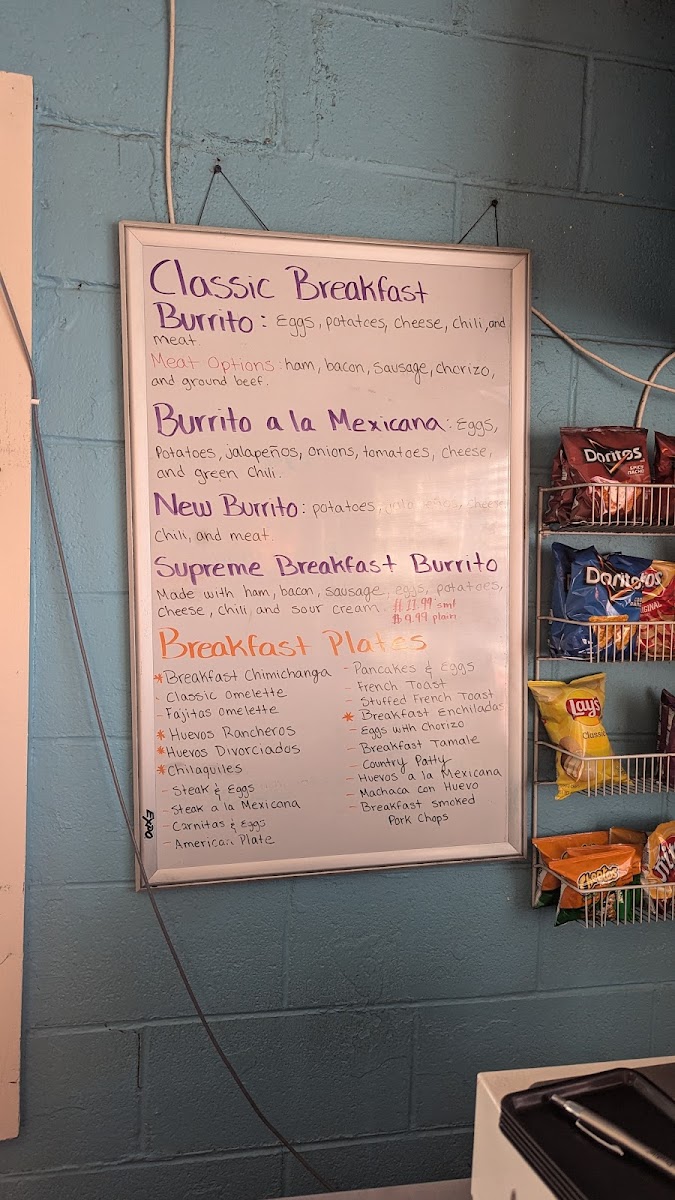 Classic Breakfast
Burrito: Eggs, potatoes, cheese, chili, and
meat.
Meat Options: ham, bacon, sausage, chorizo,
and ground beef.
Burrito a la Mexicana: Eggs,
Potatoes, jalapeños, onions, tomatoes, cheese,
and green chili.
New Burrito: potatoes, cheese
chili, and meat.
Supreme Breakfast Burrito
Made with ham, bacon, sausage, eggs, potatoes,
cheese, chili, and sour cream. $11.99 smt
$9.99 plain
Breakfast Plates
*Breakfast Chimichanga
- Classic Omelette
- Fajitas Omelette
*Huevos Rancheros
*Huevos Divorciados
*Chilaquiles
- Steak & Eggs
- Steak a la Mexicana
- Carnitas & Eggs
- American Plate
- Pancakes & Eggs
- French Toast
- Stuffed French Toast
* Breakfast Enchiladas
- Eggs with Chorizo
- Breakfast Tamale
- Country Patty
- Huevos a la Mexicana
- Machaca con Huevo
- Breakfast smoked
Pork Chops
EXPO
Doritos
SPICY
NACHO
Doritos
ORIGINAL
Lay's
Classic
Cheetos